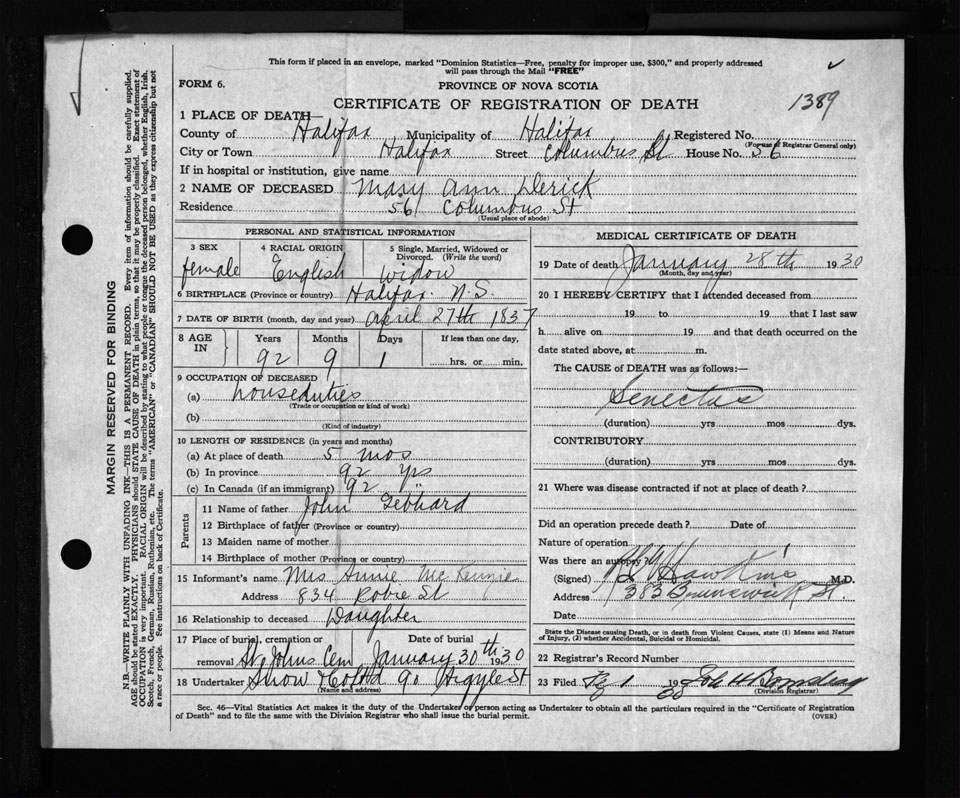 This form if placed in an envelope, marked "Dominion Statistics—Free, penalty for improper use, $300," and properly addressed
will pass through the Mail "FREE"
FORM 6.
PROVINCE OF NOVA SCOTIA
CERTIFICATE OF REGISTRATION OF DEATH
1389
1 PLACE OF DEATH—
County of Halifax Municipality of Halifax Registered No.
(For use of Registrar General only)
City or Town Halifax Street Columbus St House No. 56
If in hospital or institution, give name
2 NAME OF DECEASED Mary Ann Derick
Residence 56 Columbus St
(Usual place of abode)
PERSONAL AND STATISTICAL INFORMATION
3 SEX 4 RACIAL ORIGIN 5 Single, Married, Widowed or Divorced. (Write the word)
female English widow
6 BIRTHPLACE (Province or country) Halifax N.S.
7 DATE OF BIRTH (month, day and year) April 27th 1837
8 AGE IN Years Months Days If less than one day,
92 9 1 hrs. or min.
9 OCCUPATION OF DECEASED
(a) houseduties
(Trade or occupation or kind of work)
(b)
(Kind of industry)
10 LENGTH OF RESIDENCE (in years and months)
(a) At place of death 5 mos
(b) In province 92 yrs
(c) In Canada (if an immigrant) 92 "
Parents
11 Name of father John Gebhard
12 Birthplace of father (Province or country)
13 Maiden name of mother
14 Birthplace of mother (Province or country)
15 Informant's name Mrs Annie McKenzie
Address 834 Robie St
16 Relationship to deceased Daughter
17 Place of burial, cremation or removal Date of burial
St Johns Cem January 30th 1930
18 Undertaker Snow & Co Ltd 90 Argyle St
(Name and address)
MEDICAL CERTIFICATE OF DEATH
19 Date of death January 28th 1930
(Month, day and year)
20 I HEREBY CERTIFY that I attended deceased from
19 to 19 that I last saw
h alive on 19 and that death occurred on the
date stated above, at m.
The CAUSE of DEATH was as follows:—
Senectus
(duration) yrs mos dys.
CONTRIBUTORY
(duration) yrs mos dys.
21 Where was disease contracted if not at place of death?
Did an operation precede death? Date of
Nature of operation
Was there an autopsy?
(Signed) Hawkins M.D.
Address 383 Brunswick St.
Date
State the Disease causing Death, or in death from Violent Causes, state (1) Means and Nature
of Injury, (2) whether Accidental, Suicidal or Homicidal.
22 Registrar's Record Number
23 Filed 1 1930
(Division Registrar)
Sec. 46—Vital Statistics Act makes it the duty of the Undertaker or person acting as Undertaker to obtain all the particulars required in the "Certificate of Registration
of Death" and to file the same with the Division Registrar who shall issue the burial permit.
(OVER)
MARGIN RESERVED FOR BINDING
N.B.—WRITE PLAINLY WITH UNFADING INK—THIS IS A PERMANENT RECORD. Every item of information should be carefully supplied.
AGE should be stated EXACTLY. PHYSICIANS should STATE CAUSE OF DEATH in plain terms, so that it may be properly classified. Exact statement of
OCCUPATION is very important. RACIAL ORIGIN will be described by stating to what people or tongue the deceased person belonged, whether English, Irish,
Scotch, French, German, Russian, Ruthenian, etc. The terms "AMERICAN" or "CANADIAN" SHOULD NOT BE USED as they express citizenship but not
a race or people. See instructions on back of Certificate.